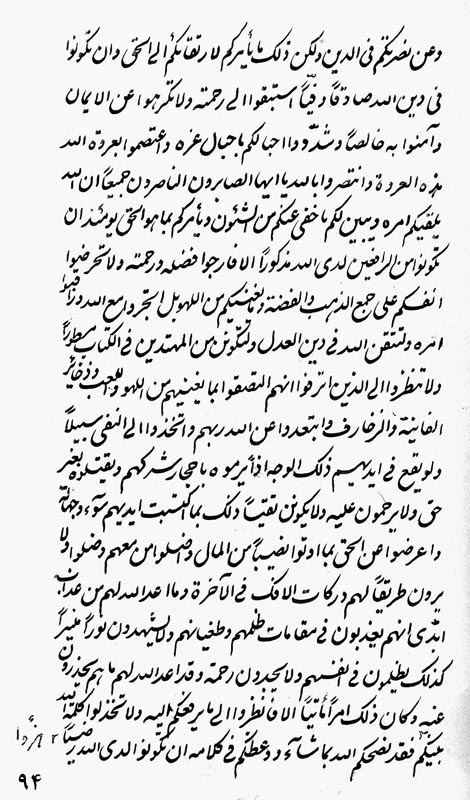 وعن نصرتكم فى الدين ولكن ذلك ما يأمركم لارتقائكم الى الحق وان تكونوا
فى دين الله صادقاً وفيّاً استبقوا الى رحمته ولا تكرهوا عن الايمان
وآمنوا به خالصاً وشدّوا احبالكم باحبال عزه واعتصموا بعروة الله
هذه العروة وانتصروا بالله يا ايها الصابرون الناصرون جميعاً ان الله
يلقيكم امره ويبين لكم ما خفى عنكم من الشئون ويأمركم بما هو الحق يومئذ ان
تكونوا من الراقين لدى الله مذكوراً الا فارجوا فضله ورحمته ولا تحرضوا
انفسكم على جمع الذهب والفضة وما يغنيكم من اللهو بل اتجروا مع الله وراقبوا
امره ولتتقن الله فى دين العدل ولتكونن من المهتدين فى الكتاب مسطوراً
ولا تنظروا الى الذين اترفوا انهم التصقوا بما يغنيهم من اللهو واللعب وذخائر
الفانية والزخارف وابتعدوا عن الله ربهم واتخذوا الى النفى سبيلاً
ولو يقع فى ايديهم ذلك الوجه اذاً يرموه باحجار شركهم ويقتلوه بغير
حق ولا يرحمون عليه ولا يكونن تقيّاً ذلك بما اكتسبت ايديهم سوء وجهالة
واعرضوا عن الحق بما اوتوا نصيباً من المال واضلوا من معهم وضلوا ولا
يرون طريقاً لهم دركات الافك فى الآخرة وما اعد الله لهم من عذاب
ابدى انهم يعذبون فى مقامات ظلمهم وطغيانهم ولا يشهدون نوراً منيراً
كذلك يظلمون فى انفسهم ولا يجدون رحمة وقد اعد الله لهم ما هم يحذرون
عنه وكان ذلك امراً مأتيّاً الا فانظروا الى ما يرفعكم اليه ولا تخذلوا كلمة الله
بينكم فقد نصحكم الله بما شاء ووعظكم فى كلامه ان تكونوا لدى الله رضيّاً
٩٤